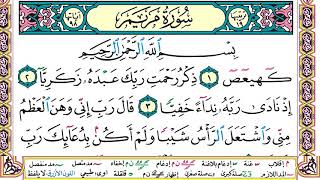 سُورَةُ مَرْيَمَ
بِسْمِ ٱللَّهِ ٱلرَّحْمَٰنِ ٱلرَّحِيمِ
كٓهيعٓصٓ ١ ذِكْرُ رَحْمَتِ رَبِّكَ عَبْدَهُۥ زَكَرِيَّآ ٢
إِذْ نَادَىٰ رَبَّهُۥ نِدَآءً خَفِيًّا ٣ قَالَ رَبِّ إِنِّى وَهَنَ ٱلْعَظْمُ
مِنِّى وَٱشْتَعَلَ ٱلرَّأْسُ شَيْبًا وَلَمْ أَكُنۢ بِدُعَآئِكَ رَبِّ